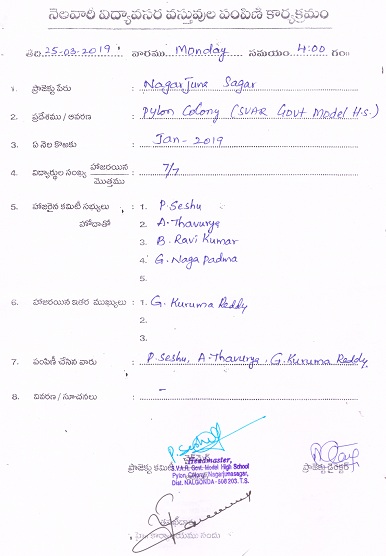 నెలవారీ విద్యావసర వస్తువుల పంపిణీ కార్యక్రమం
తేది. 25-03-2019 వారము. Monday సమయం. 4:00 గం॥
1. ప్రాజెక్టు పేరు : Nagarjuna Sagar
2. ప్రదేశము / ఆవరణ : Pylon Colony (SVAR Govt Model H.S.)
3. ఏ నెల కొఱకు : Jan - 2019
4. విద్యార్థుల సంఖ్య హాజరయిన / మొత్తము : 7/7
5. హాజరైన కమిటీ సభ్యులు : 1. P. Seshu
హోదాతో 2. A. Thavurya
3. B. Ravi Kumar
4. G. Naga Padma
5.
6. హాజరయిన ఇతర ముఖ్యులు : 1. G. Kuruma Reddy
2.
3.
7. పంపిణీ చేసిన వారు : P. Seshu, A. Thavurya, G. Kuruma Reddy
8. వివరణ / సూచనలు : -
P. Seshu
Headmaster,
ప్రాజెక్టు కమిటీ S.V.A.R. Govt. Model High School ప్రాజెక్టు
Pylon Colony, Nagarjunasagar,
Dist. NALGONDA - 508 203. T.S.